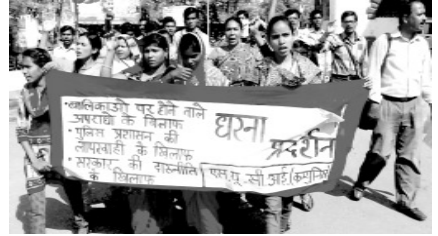 • बालिकाओं पर होने वाले
अपराधों के खिलाफ
• पुलिस प्रशासन की
लापरवाही के खिलाफ
• सरकार की दारूनीति
के खिलाफ
धरना
प्रदर्शन
एस.यू.सी.आई.(कम्युनिस्ट